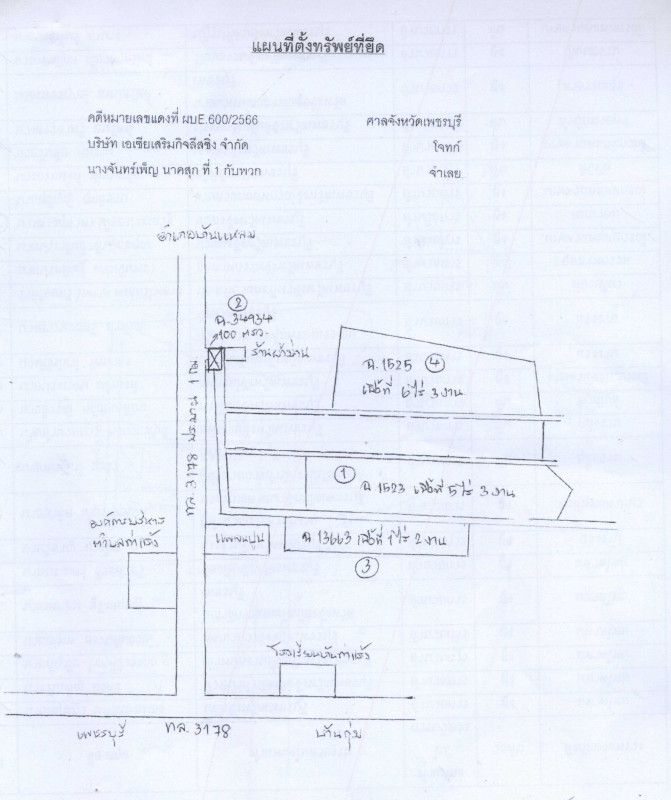 แผนที่ตั้งทรัพย์ที่ยึด
คดีหมายเลขแดงที่ ผบE.600/2566
ศาลจังหวัดเพชรบุรี
บริษัท เอเซียเสริมกิจลีสซิ่ง จำกัด
โจทก์
นางจันทร์เพ็ญ นาคสุก ที่ 1 กับพวก
จำเลย
อำเภอบ้านแหลม
2
ฉ.34934
100 ตรว.
ร้านผ้าม่าน
ฉ.1525 4
เนื้อที่ 6 ไร่ 3 งาน
ทล.3178 ประมาณ 1 กม.
1
ฉ.1523 เนื้อที่ 5 ไร่ 3 งาน
องค์การบริหาร
ตำบลท่าแร้ง
แพลนปูน
ฉ.13663 เนื้อที่ 1 ไร่ 2 งาน
3
โรงเรียนบ้านท่าแร้ง
เพชรบุรี
ทล.3178